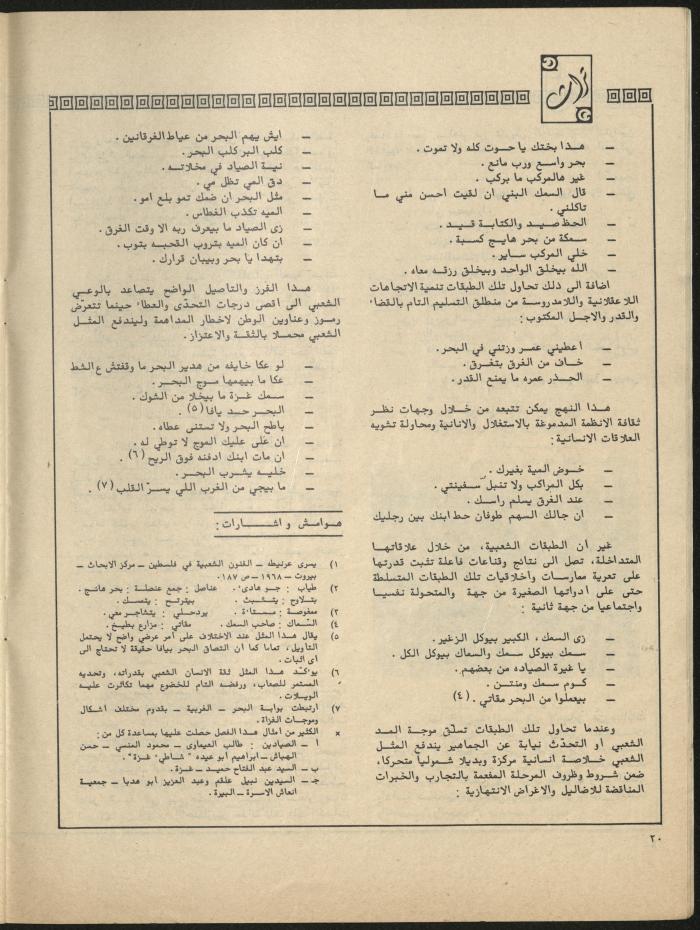 تراث
ـ هذا بختك يا حوت كله ولا تموت .
ـ بحر واسع ورب مانع .
ـ غير هالمركب ما بركب .
ـ قال السمك البني ان لقيت احسن مني ما
تاكلني .
ـ الحظ صيد والكتابة قيد .
ـ سمكة من بحر هايج كسبة .
ـ خلي المركب ساير .
ـ الله بيخلق الواحد وبيخلق رزقه معاه .
اضافة الى ذلك تحاول تلك الطبقات تنمية الاتجاهات
اللاعقلانية واللامدروسة من منطلق التسليم التام بالقضاء
والقدر والاجل المكتوب :
ـ اعطيني عمر وزتني في البحر .
ـ خاف من الغرق بتغرق .
ـ الحذر عمره ما يمنع القدر .
هذا النهج يمكن تتبعه من خلال وجهات نظر
ثقافة الانظمة المدموغة بالاستغلال والانانية ومحاولة تشويه
العلاقات الانسانية :
ـ خوض المية بغيرك .
ـ بكل المراكب ولا تنبل سفينتي .
ـ عند الغرق يسلم راسك .
ـ ان جالك السهم طوفان حط ابنك بين رجليك
غير ان الطبقات الشعبية ، من خلال علاقاتها
المتداخلة ، تصل الى نتائج وقناعات فاعلة تثبت قدرتها
على تعرية ممارسات وأخلاقيات تلك الطبقات المتسلطة
حتى على أدواتها الصغيرة من جهة والمتحولة نفسيا
واجتماعيا من جهة ثانية :
ـ زى السمك ، الكبير بيوكل الزغير .
ـ سمك بيوكل سمك والسماك بيوكل الكل .
ـ يا غيرة الصياده من بعضهم .
ـ كوم سمك ومنتن .
ـ بيعملوا من البحر مقاتي . (٤)
وعندما تحاول تلك الطبقات تسلق موجة المد
الشعبي أو التحدث نيابة عن الجماهير يندفع المثل
الشعبي خلاصة انسانية مركزة وبديلا شموليا متحركا ،
ضمن شروط وظروف المرحلة المفعمة بالتجارب والخبرات
المناقضة للاضاليل والاغراض الانتهازية :
ـ ايش يهم البحر من عياط الغرقانين .
ـ كلب البر كلب البحر .
ـ نية الصياد في مخلاته .
ـ دق المي تظل مي .
ـ مثل البحر ان ضمك تمو بلع امو .
ـ الميه تكذب الغطاس .
ـ زى الصياد ما بيعرف ربه الا وقت الغرق .
ـ ان كان الميه بتروب القحبه بتوب .
ـ بتهدا يا بحر وبيبان قرارك .
هذا الفرز والتاصيل الواضح يتصاعد بالوعي
الشعبي الى أقصى درجات التحدى والعطاء حينما تتعرض
رموز وعناوين الوطن لاخطار المداهمة وليندفع المثل
الشعبي محملا بالثقة والاعتزاز .
ـ لو عكا خايفه من هدير البحر ما وقفتش ع الشط
ـ عكا ما بيهمها موج البحر .
ـ سمك غزة ما بيخلا من الشوك .
ـ البحر حد يافا (٥) .
ـ باطح البحر ولا تستنى عطاه .
ـ ان على عليك الموج لا توطي له .
ـ ان مات ابنك ادفنه فوق الريح (٦) .
ـ خليه يشرب البحر .
ـ ما بيجي من الغرب اللي يسر القلب (٧) .
هوامش واشارات :
١) يسرى عرنيطه ـ الفنون الشعبية في فلسطين ـ مركز الابحاث ـ
بيروت ـ ١٩٦٨ ـ ص ١٨٧ .
٢) طياب : جو هادىء . عناصل : جمع عنصلة : بحر هائج .
بتلاوح : يتشبث . بيترتح : يتمسك .
٣) معفوصة : مستاءة . يردحلي : يتشاجر معي .
٤) السماك : صاحب السمك . مقاتي : مزارع بطيخ .
٥) يقال هذا المثل عند الاختلاف على أمر عرضي واضح لا يحتمل
التأويل ، تماما كما ان التصاق البحر بيافا حقيقة لا تحتاج الى
اى اثبات .
٦) يؤكد هذا المثل ثقة الانسان الشعبي بقدراته ، وتحديه
المستمر للصعاب ، ورفضه التام للخضوع مهما تكاثرت عليه
الويلات .
٧) ارتبطت بوابة البحر ـ الغربية ـ بقدوم مختلف اشكال
وموجات الغزاة .
× الكثير من أمثال هذا الفصل حصلت عليها بمساعدة كل من :
أ ـ الصيادين : طالب العيماوى ـ محمود المنسي ـ حسن
الهباش ـ ابراهيم أبو عيده " شاطىء غزة " .
ب ـ السيد عبد الفتاح حميد ـ غزة .
جـ ـ السيدين نبيل علقم وعبد العزيز أبو هدبا ـ جمعية
انعاش الاسرة ـ البيرة .
٢٠